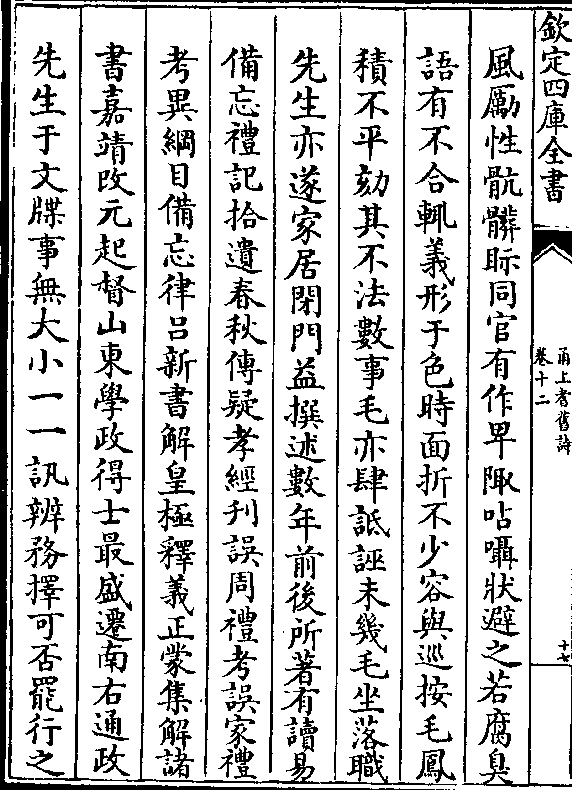 欽定四庫全書
甬上耆舊詩
卷十二
十七
風厲性骯髒眎同官有作卑陬呫囁狀避之若腐臭
語有不合輒義形于色時面折不少容與巡按毛鳳
積不平劾其不法數事毛亦肆詆誣未幾毛坐落職
先生亦遂家居閉門益撰述數年前後所著有讀易
備忘禮記拾遺春秋傳疑孝經刊誤周禮考誤家禮
考異綱目備忘律吕新書解皇極釋義正蒙集解諸
書嘉靖改元起督山東學政得士最盛遷南右通政
先生于文牒事無大小一一訊辨務擇可否罷行之